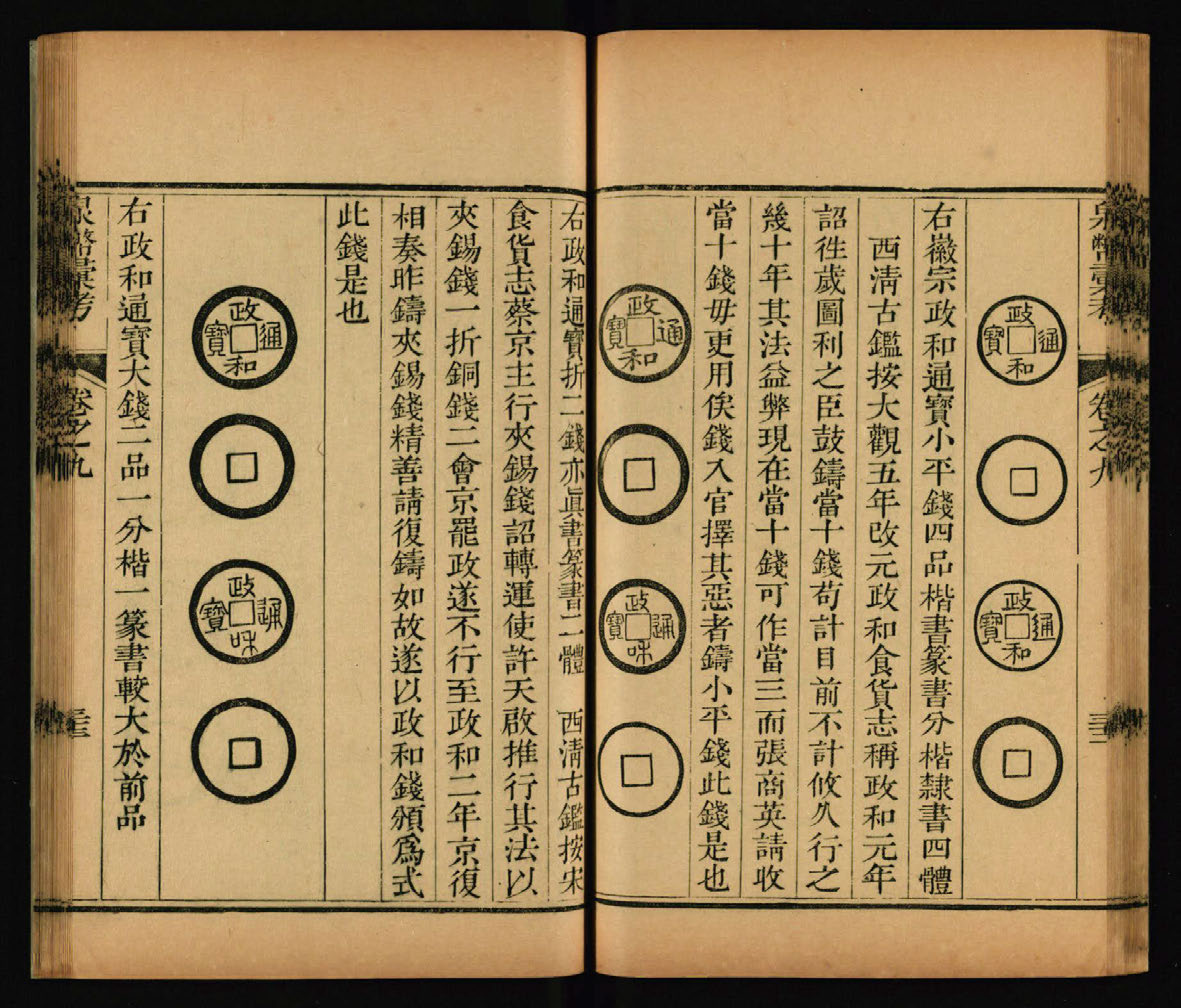 泉幣彙考
卷之九
三十二
政和通寶
政和通寶
右徽宗政和通寶小平錢四品楷書篆書分楷隸書四體
西清古鑑按大觀五年改元政和食貨志稱政和元年
詔徃歲圖利之臣鼓鑄當十錢苟計目前不計攸久行之
幾十年其法益弊現在當十錢可作當三而張商英請收
當十錢毋更用俟錢入官擇其惡者鑄小平錢此錢是也
政和通寶
政和通寶
右政和通寶折二錢亦眞書篆書二體 西清古鑑按宋
食貨志蔡京主行夾錫錢詔轉運使許天啟推行其法以
夾錫錢一折銅錢二會京罷政遂不行至政和二年京復
相奏昨鑄夾錫錢精善請復鑄如故遂以政和錢頒爲式
此錢是也
政和通寶
政和通寶
右政和通寶大錢二品一分楷一篆書較大於前品
泉幣彙考
卷之九
三十三